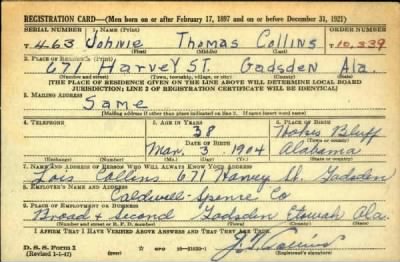 REGISTRATION CARD—(Men born on or after February 17, 1897 and on or before December 31, 1921)
SERIAL NUMBER 1. NAME (Print) ORDER NUMBER
T 463 Johnie Thomas Collins T 10,339
(First) (Middle) (Last)
2. PLACE OF RESIDENCE (Print)
671 Harvey St. Gadsden Ala.
(Number and street) (Town, township, village, or city) (County) (State)
[THE PLACE OF RESIDENCE GIVEN ON THE LINE ABOVE WILL DETERMINE LOCAL BOARD
JURISDICTION; LINE 2 OF REGISTRATION CERTIFICATE WILL BE IDENTICAL]
3. MAILING ADDRESS
Same
(Mailing address if other than place indicated on line 2. If same insert word same)
4. TELEPHONE 5. AGE IN YEARS 6. PLACE OF BIRTH
38 Hokes Bluff
DATE OF BIRTH (Town or county)
Mar 3 1904 Alabama
(Exchange) (Number) (Mo.) (Day) (Yr.) (State or country)
7. NAME AND ADDRESS OF PERSON WHO WILL ALWAYS KNOW YOUR ADDRESS
Lois Collins 671 Harvey St. Gadsden
8. EMPLOYER'S NAME AND ADDRESS
Caldwell-Spence Co
9. PLACE OF EMPLOYMENT OR BUSINESS
Broad & Second Gadsden Etowah Ala.
(Number and street or R. F. D. number) (Town) (County) (State)
I AFFIRM THAT I HAVE VERIFIED ABOVE ANSWERS AND THAT THEY ARE TRUE.
D. S. S. Form 1
(Revised 1-1-42) GPO
J. T. Collins